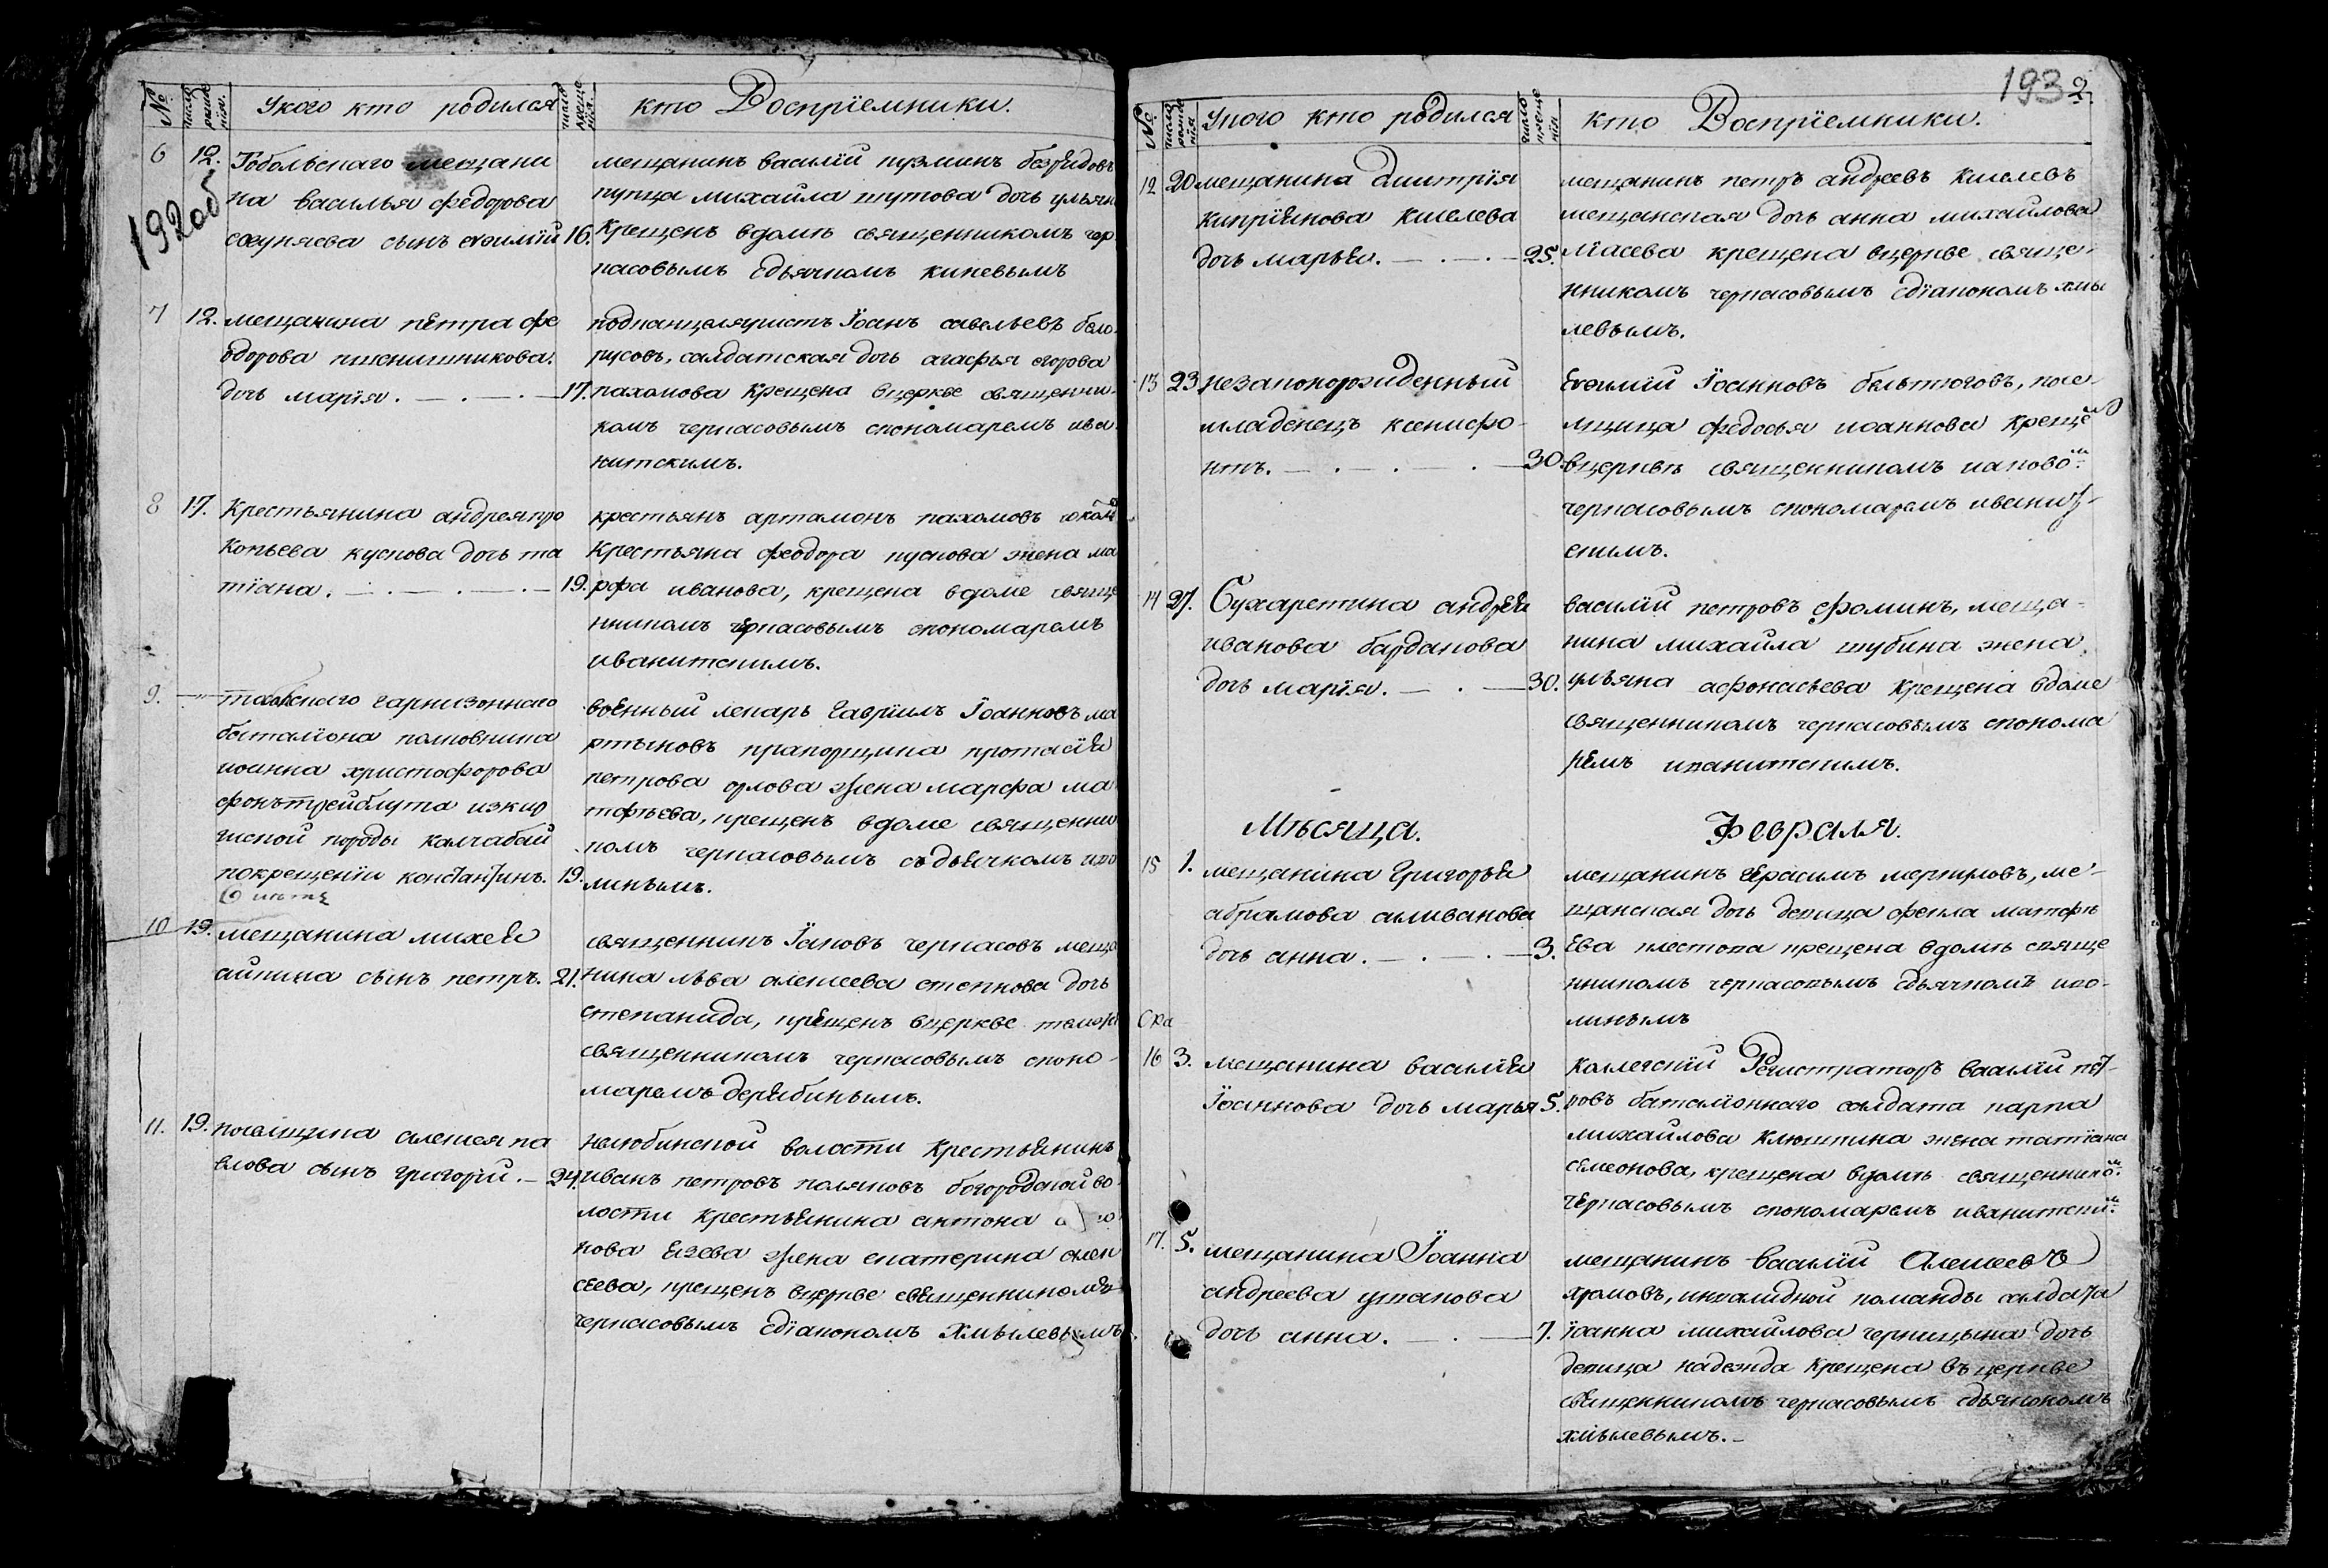 192 об
№
число
рожде
нiя.
Укого кто родился
число
креще
нiя.
кто Воспрiемники.
6 12. Тобольскаго мещани
на василья федорова
сынъ евѳимiй 16.
мещанинъ василiй кузминъ
купца михайла шутова дочь ульян
Крещенъ вдомѣ священникомъ чер
касовымъ сдьячкомъ
7 12. мещанина петра фе
одорова пшенишникова.
дочь марiя. — . — . — 17.
подканцеляристъ Iоанъ савельевъ бело
русовъ, салдатская дочь агафья егорова
пахомова Крещена вцеркве священни
комъ черкасовымъ спономаремъ ива
нитскимъ.
8 17. Крестьянина андрея про
копьева кускова дочь та
тiана. — . — . — . — 19.
крестьянъ артамонъ пахомовъ
Крестьяна феодора кускова жена ма
рфа иванова, крещена вдоме свяще
нникомъ черкасовымъ спономаремъ
иванитскимъ.
9. —"— гарнизоннаго
баталiона полковника
иоанна христофорова
фонътрейблута изкир
гиской породы калчабай
покрещенiи константинъ. 19.
военный лекарь Гаврiилъ Iоанновъ ма
ртыновъ прапорщика протасiя
петрова орлова жена марфа ма
тфѣева, крещенъ вдоме священни
комъ черкасовымъ съдьячкомъ
линымъ.
10 19. мещанина михея
айкина сынъ петръ. 21.
священникъ Iаковъ черкасовъ меща
нина льва алексеева степнова дочь
степанида, крещенъ вцеркве темже
священникомъ черкасовымъ споно-
маремъ дерябинымъ.
11. 19. поселщика алексея па
влова сынъ григорiй. — 24.
нелюбинской волости Крестьянинъ
иванъ петровъ поляковъ богородской во
лости крестьянина антона
кова жена екатерина алек
сеева, крещенъ вцеркве священникомъ
черкасовымъ сдiакономъ Хмылевымъ.
193 2.
№
число
рожде
нiя
Укого кто родился
число
креще
нiя
кто Воспрiемники.
12 20 мещанина Дмитрiя
Киприянова Киселева
дочь марья. — . — . — 25.
мещанинъ петръ андреевъ Киселевъ
мещанская дочь анна михайлова
крещена вцеркве свяще-
нникомъ черкасовымъ сдiакономъ хмы
левымъ.
13 23 незаконорожденный
младенецъ ксенофо-
нтъ. — . — . — . — 30.
Евѳимiй Iоанновъ посе-
лщица федосья иоаннова Креще
вцерквѣ священникомъ иаково
черкасовымъ спономаремъ иванит-
скимъ.
14 27. Сухаретина андрея
иванова барданова
дочь марiя. — . — 30.
василiй петровъ фоминъ, меща-
нина михайла шубина жена.
ульяна афонасьева Крещена вдоме
священникомъ черкасовымъ спонома
ремъ иванитскимъ.
Мѣсяца. Февраля.
15 1. мещанина Григорья
абрамова селиванова
дочь анна. — . — . — 3.
мещанинъ герасимъ меркуровъ, ме-
щанская дочь девица фекла матфѣ
ева крещена вдомѣ свяще
нникомъ черкасовымъ сдьячкомъ
линымъ
16 3. мещанина василiя
Iоаннова дочь марья 5.
Калегскiй Регистраторъ василiй пет-
ровъ баталiоннаго салдата карпа
михайлова Клюшкина жена татiана
семеонова, крещена вдомѣ священнико
черкасовымъ спономаремъ иванитски
17. 5. мещанина Iоанна
андреева ушакова
дочь анна. — . — 7.
мещанинъ василiй Алексеевъ
храмовъ, инвалидной команды салдата
iоанна михайлова черницына дочь
девица надежда крещена въцеркве
священникомъ черкасовымъ сдьякономъ
хмылевымъ. —